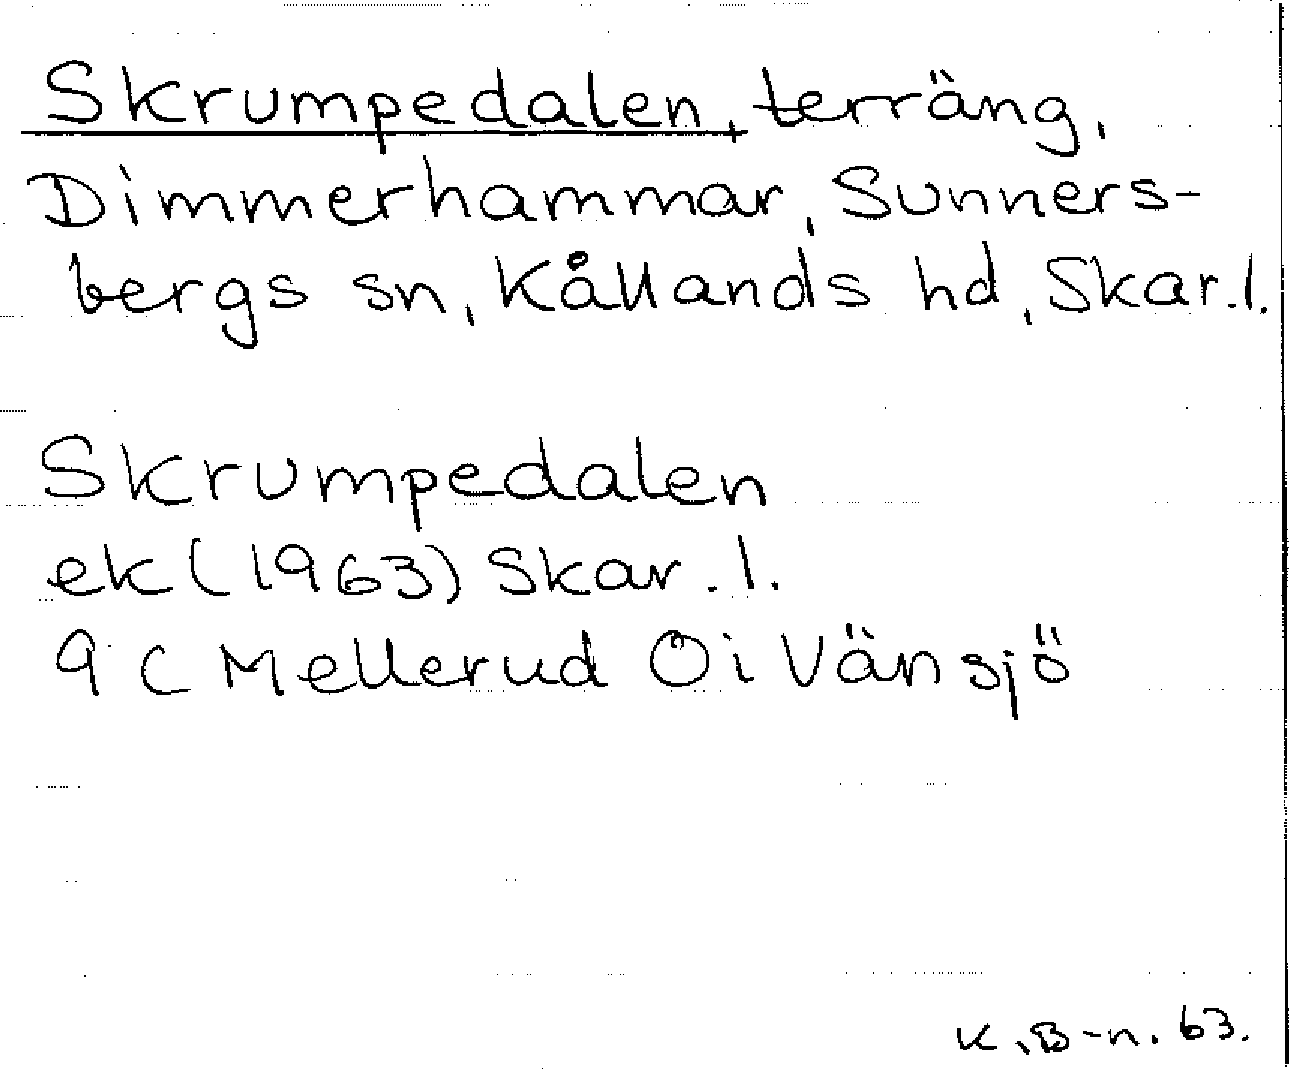 Skrumpedalen, terräng,
Dimmerhammar, Sunners-
bergs sn, Kållands hd, Skar.l.
Skrumpedalen
ek (1963) Skar.l.
9 C Mellerud Öi Vänsjö
K.B-n. 63.